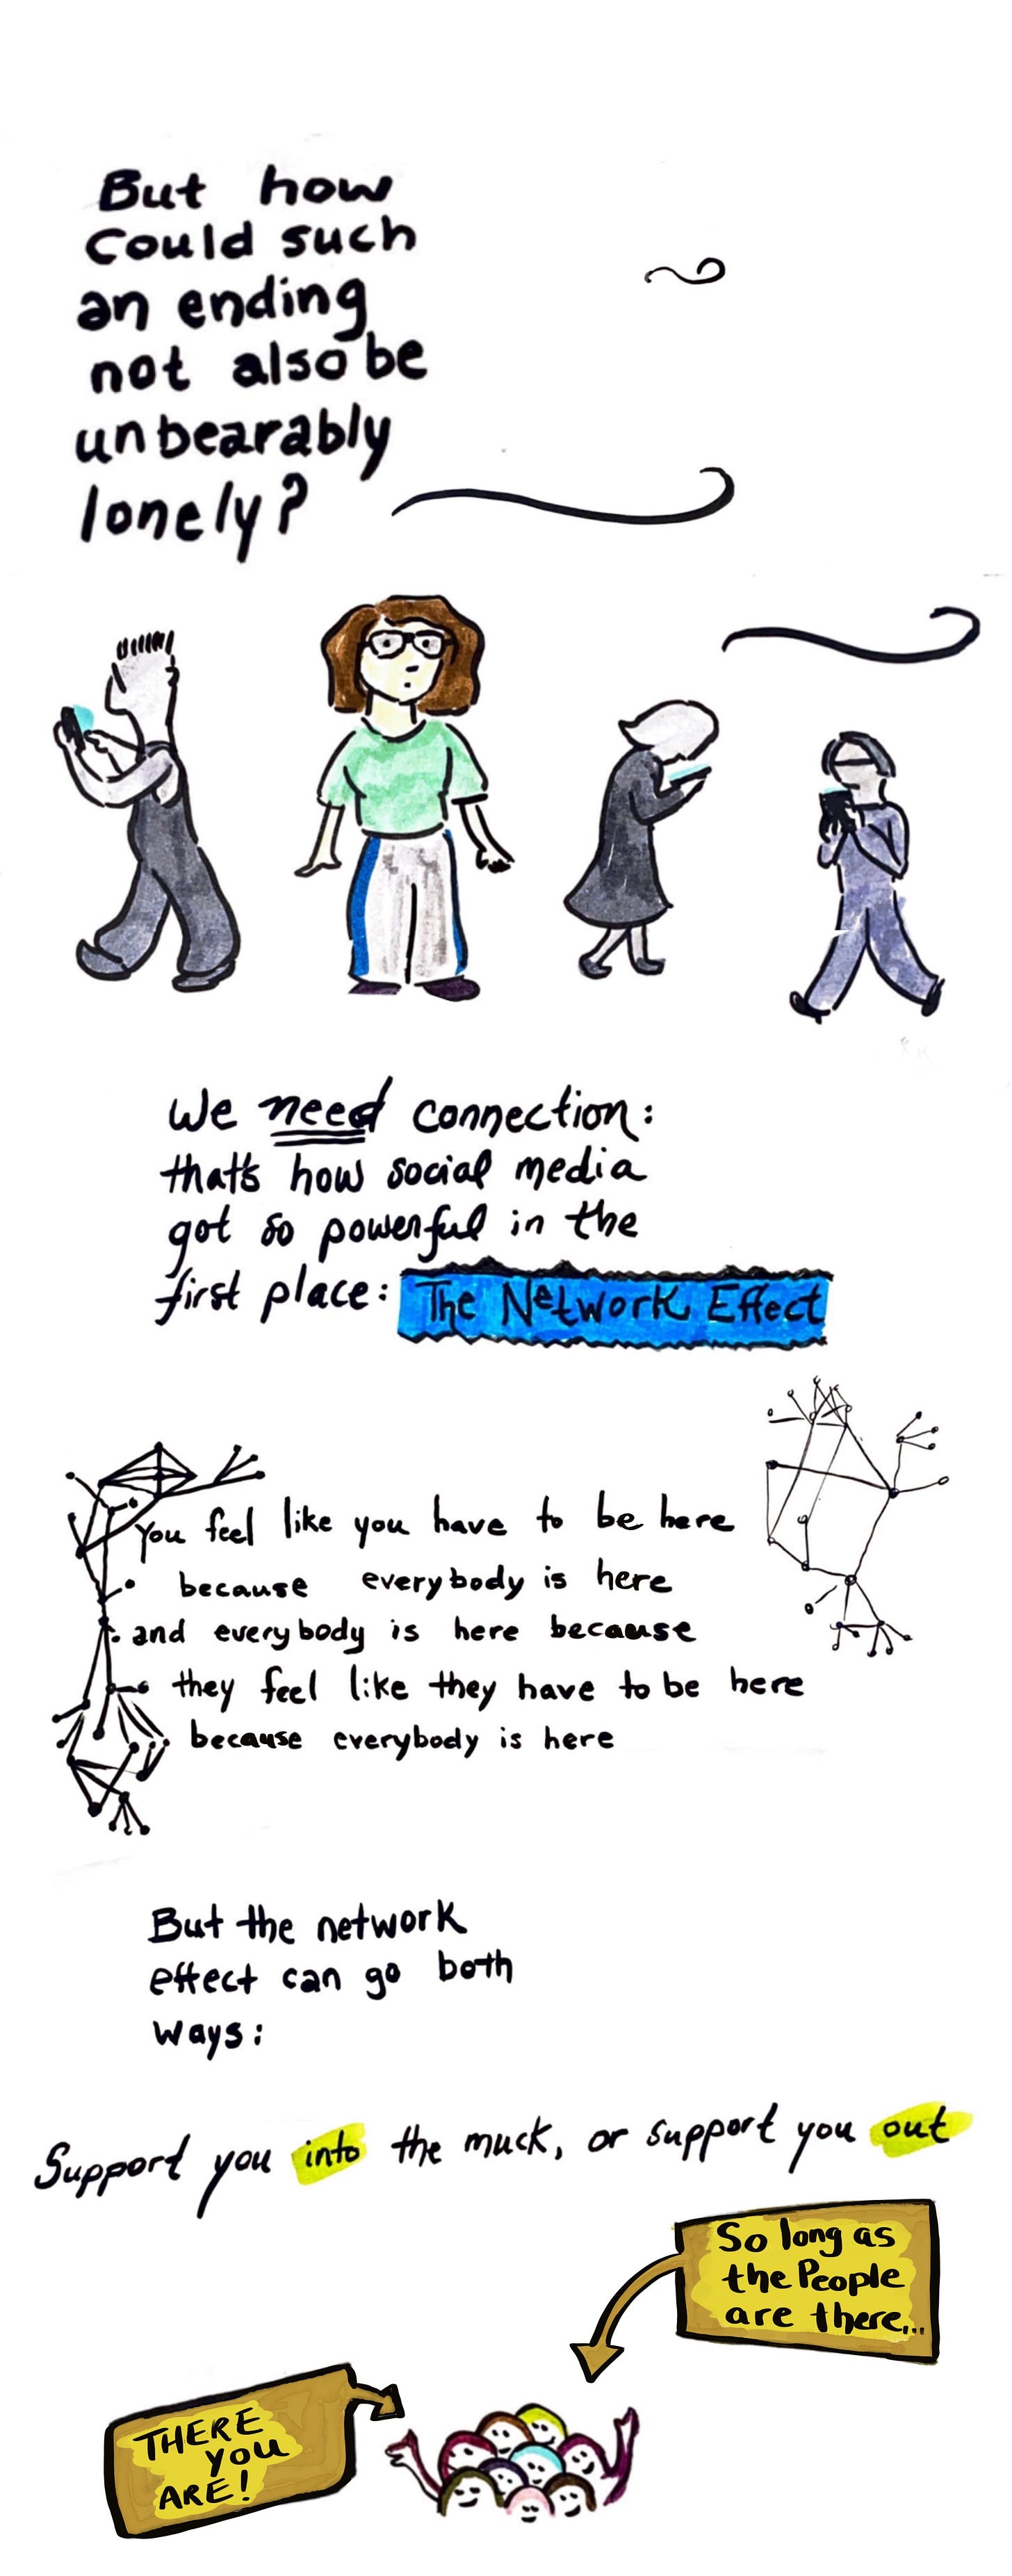 But how
Could such
an ending
not also be
unbearably
lonely?
We need connection:
that's how social media
got so powerful in the
first place: The Network Effect
You feel like you have to be here
because everybody is here
and everybody is here because
they feel like they have to be here
because everybody is here
But the network
effect can go both
ways:
Support you into the muck, or support you out
So long as
the People
are there...
THERE
YOU
ARE!